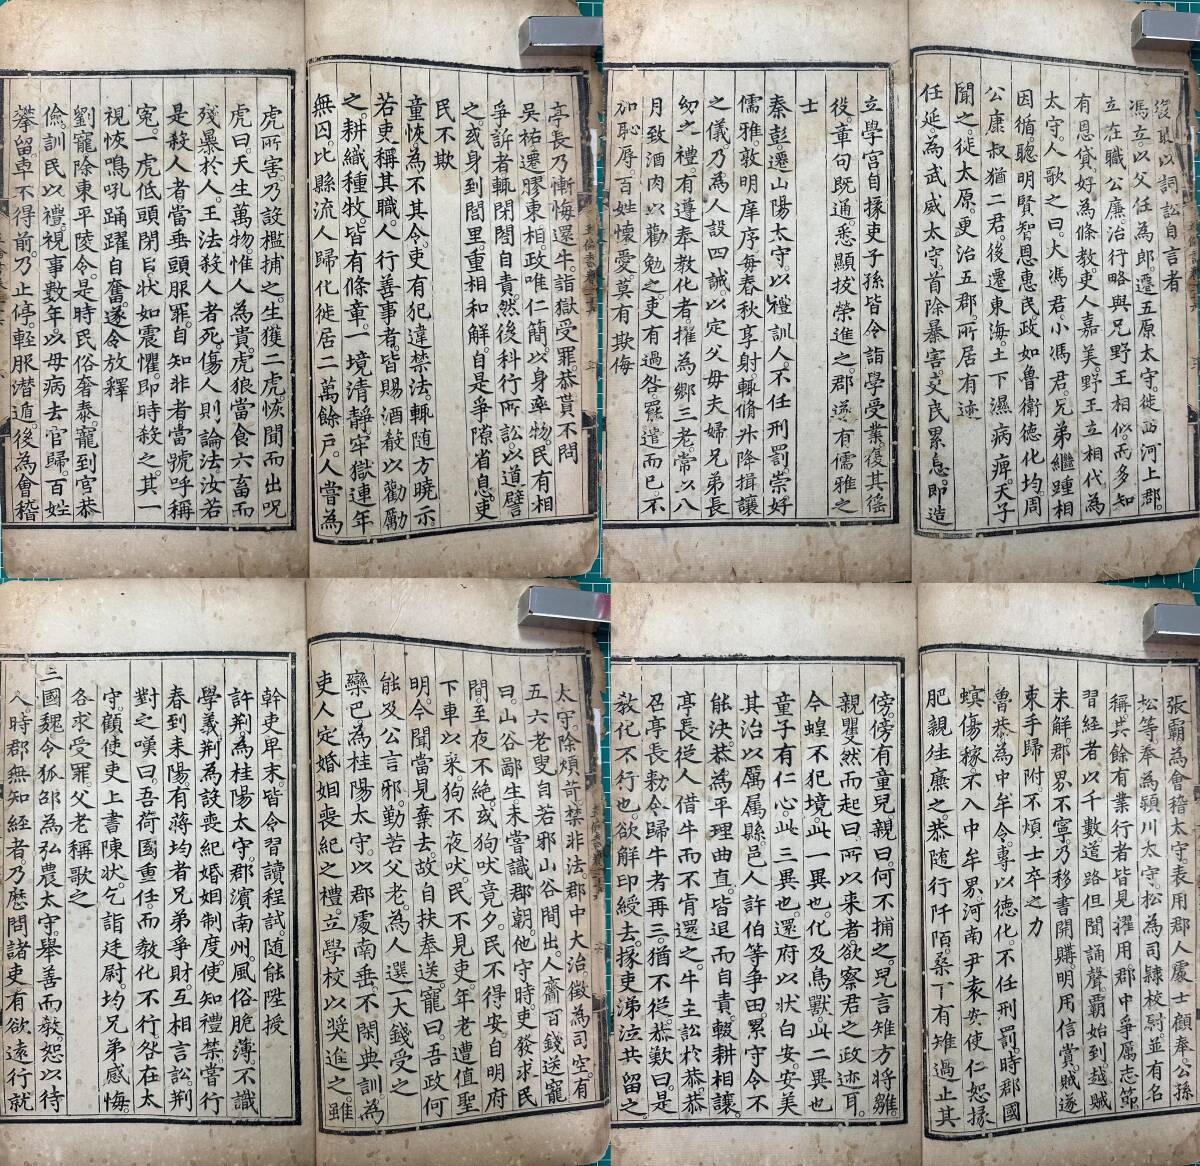 復敢以詞訟自言者
馮立。以父任為郎。遷五原太守。徙西河上郡。
立在職公廉。治行略與兄野王相似。而多知
有恩貸。好為條教。吏人嘉美。野王立相代為
太守。人歌之曰。大馮君。小馮君。兄弟繼踵相
因循。聰明賢智恩惠民。政如魯衛德化均。周
公康叔猶二君。後遷東海。土下濕病痺。天子
聞之。徙太原。更治五郡。所居有迹
任延。為武威太守。首除暴害。父民累息。即造
立學官。自掾吏子孫。皆令詣學受業。復其徭
役。章句既通。悉顯技榮進之。郡遂有儒雅之
士
秦彭。遷山陽太守。以禮訓人。不任刑罰。崇好
儒雅。敦明庠序。每春秋享射。輒脩升降揖讓
之儀。乃為人設四誡。以定父母夫婦兄弟長
幼之禮。有遵奉教化者。擢為鄉三老。常以八
月致酒肉以勸勉之。吏有過咎。罷遣而已。不
加恥辱。百姓懷愛。莫有欺侮
張霸為會稽太守。表用郡人處士顧奉。公孫
松等。奉為穎川太守。松為司隸校尉。並有名
稱。其餘有業行者。皆見擢用。郡中爭厲志節。
習經者以千數。道路但聞誦聲。霸始到。越賊
未解。郡界不寧。乃移書開購。明用信賞。賊遂
束手歸附。不煩士卒之力
魯恭為中牟令。專以德化。不任刑罰。時郡國
螟傷稼。不入中牟界。河南尹袁安使仁恕掾
肥親往廉之。恭隨行阡陌。桑下有雉過止其
傍。傍有童兒。親曰。何不捕之。兒言雉方將雛。
親瞿然而起曰。所以来者。欲察君之政迹耳。
今蝗不犯境。此一異也。化及鳥獸。此二異也
童子有仁心。此三異也。還府以狀白安。安美
其治以厲屬縣。邑人許伯等爭田。累守令不
能決。恭為平理曲直。皆退而自責。輟耕相讓。
亭長從人借牛而不肯還之。牛主訟於恭。恭
召亭長勑令歸牛者再三。猶不從。恭歎曰。是
敎化不行也。欲解印綬去。掾吏涕泣共留之。
亭長乃慚悔還牛。詣獄受罪。恭貰不問
吳祐遷膠東相。政唯仁簡。以身率物。民有相
爭訴者。輒閉閤自責。然後科行所訟。以道譬
之。或身到閭里。重相和解。自是爭隙省息。吏
民不欺
童恢。為不其令。吏有犯違禁法。輒随方曉示
若吏稱其職。人行善事者。皆賜酒殽以勸勵
之。耕織種牧。皆有條章。一境清靜。牢獄連年
無囚。比縣流人歸化。徙居二萬餘戶。人嘗為
虎所害。乃設檻捕之。生獲二虎。恢聞而出呪
虎曰。天生萬物。惟人為貴。虎狼當食六畜。而
殘暴於人。王法殺人者死。傷人則論法。汝若
是殺人者。當垂頭服罪。自知非者。當號呼稱
寃。一虎低頭閉目。狀如震懼。即時殺之。其一
視恢鳴吼。踊躍自奮。遂令放釋
劉寵除東平陵令。是時民俗奢泰。寵到官恭
儉。訓民以禮。視事數年。以母病去官歸。百姓
攀留車不得前。乃止停。輕服潜遁。後為會稽
太守。除煩苛。禁非法。郡中大治。徵為司空。有
五六老叟自若邪山谷間出。人齎百錢送寵
曰。山谷鄙生。未嘗識郡朝。他守時。吏發求民
間。至夜不絶。或狗吠竟夕。民不得安。自明府
下車以来。狗不夜吠。民不見吏。年老遭值聖
明。今聞當見棄去。故自扶奉送。寵曰。吾政何
能及公言邪。勤苦父老。為人選一大錢受之
欒巴。為桂陽太守。以郡處南垂。不閑典訓。為
吏人定婚姻喪紀之禮。立學校以奨進之。雖
幹吏卑末。皆令習讀程試。随能陞授
許荆。為桂陽太守。郡濱南州。風俗脆薄。不識
學義。荆為設喪紀婚姻制度。使知禮禁。嘗行
春到耒陽。有蔣均者。兄弟爭財。互相言訟。荆
對之嘆曰。吾荷國重任。而敎化不行。咎在太
守。顧使吏上書陳狀。乞詣廷尉。均兄弟感悔。
各求受罪。父老稱歌之
三國魏令狐邵。為弘農太守。舉善而敎。恕以待
人。時郡無知經者。乃歷問諸吏有欲遠行就